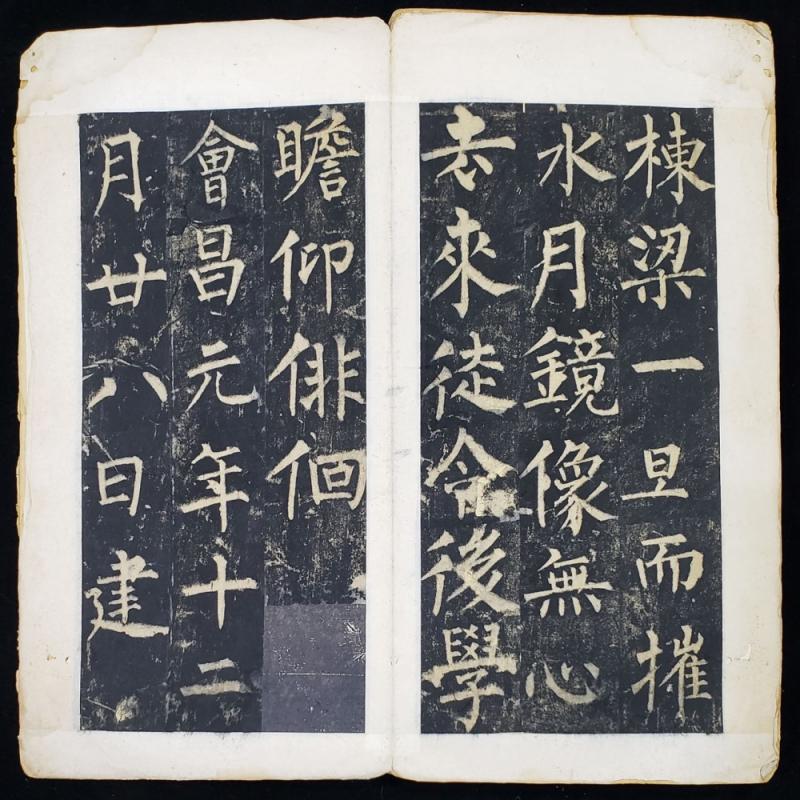 棟梁一旦而摧
水月鏡像無心
去來徒令後學
瞻仰俳佪
會昌元年十二
月廿八日建